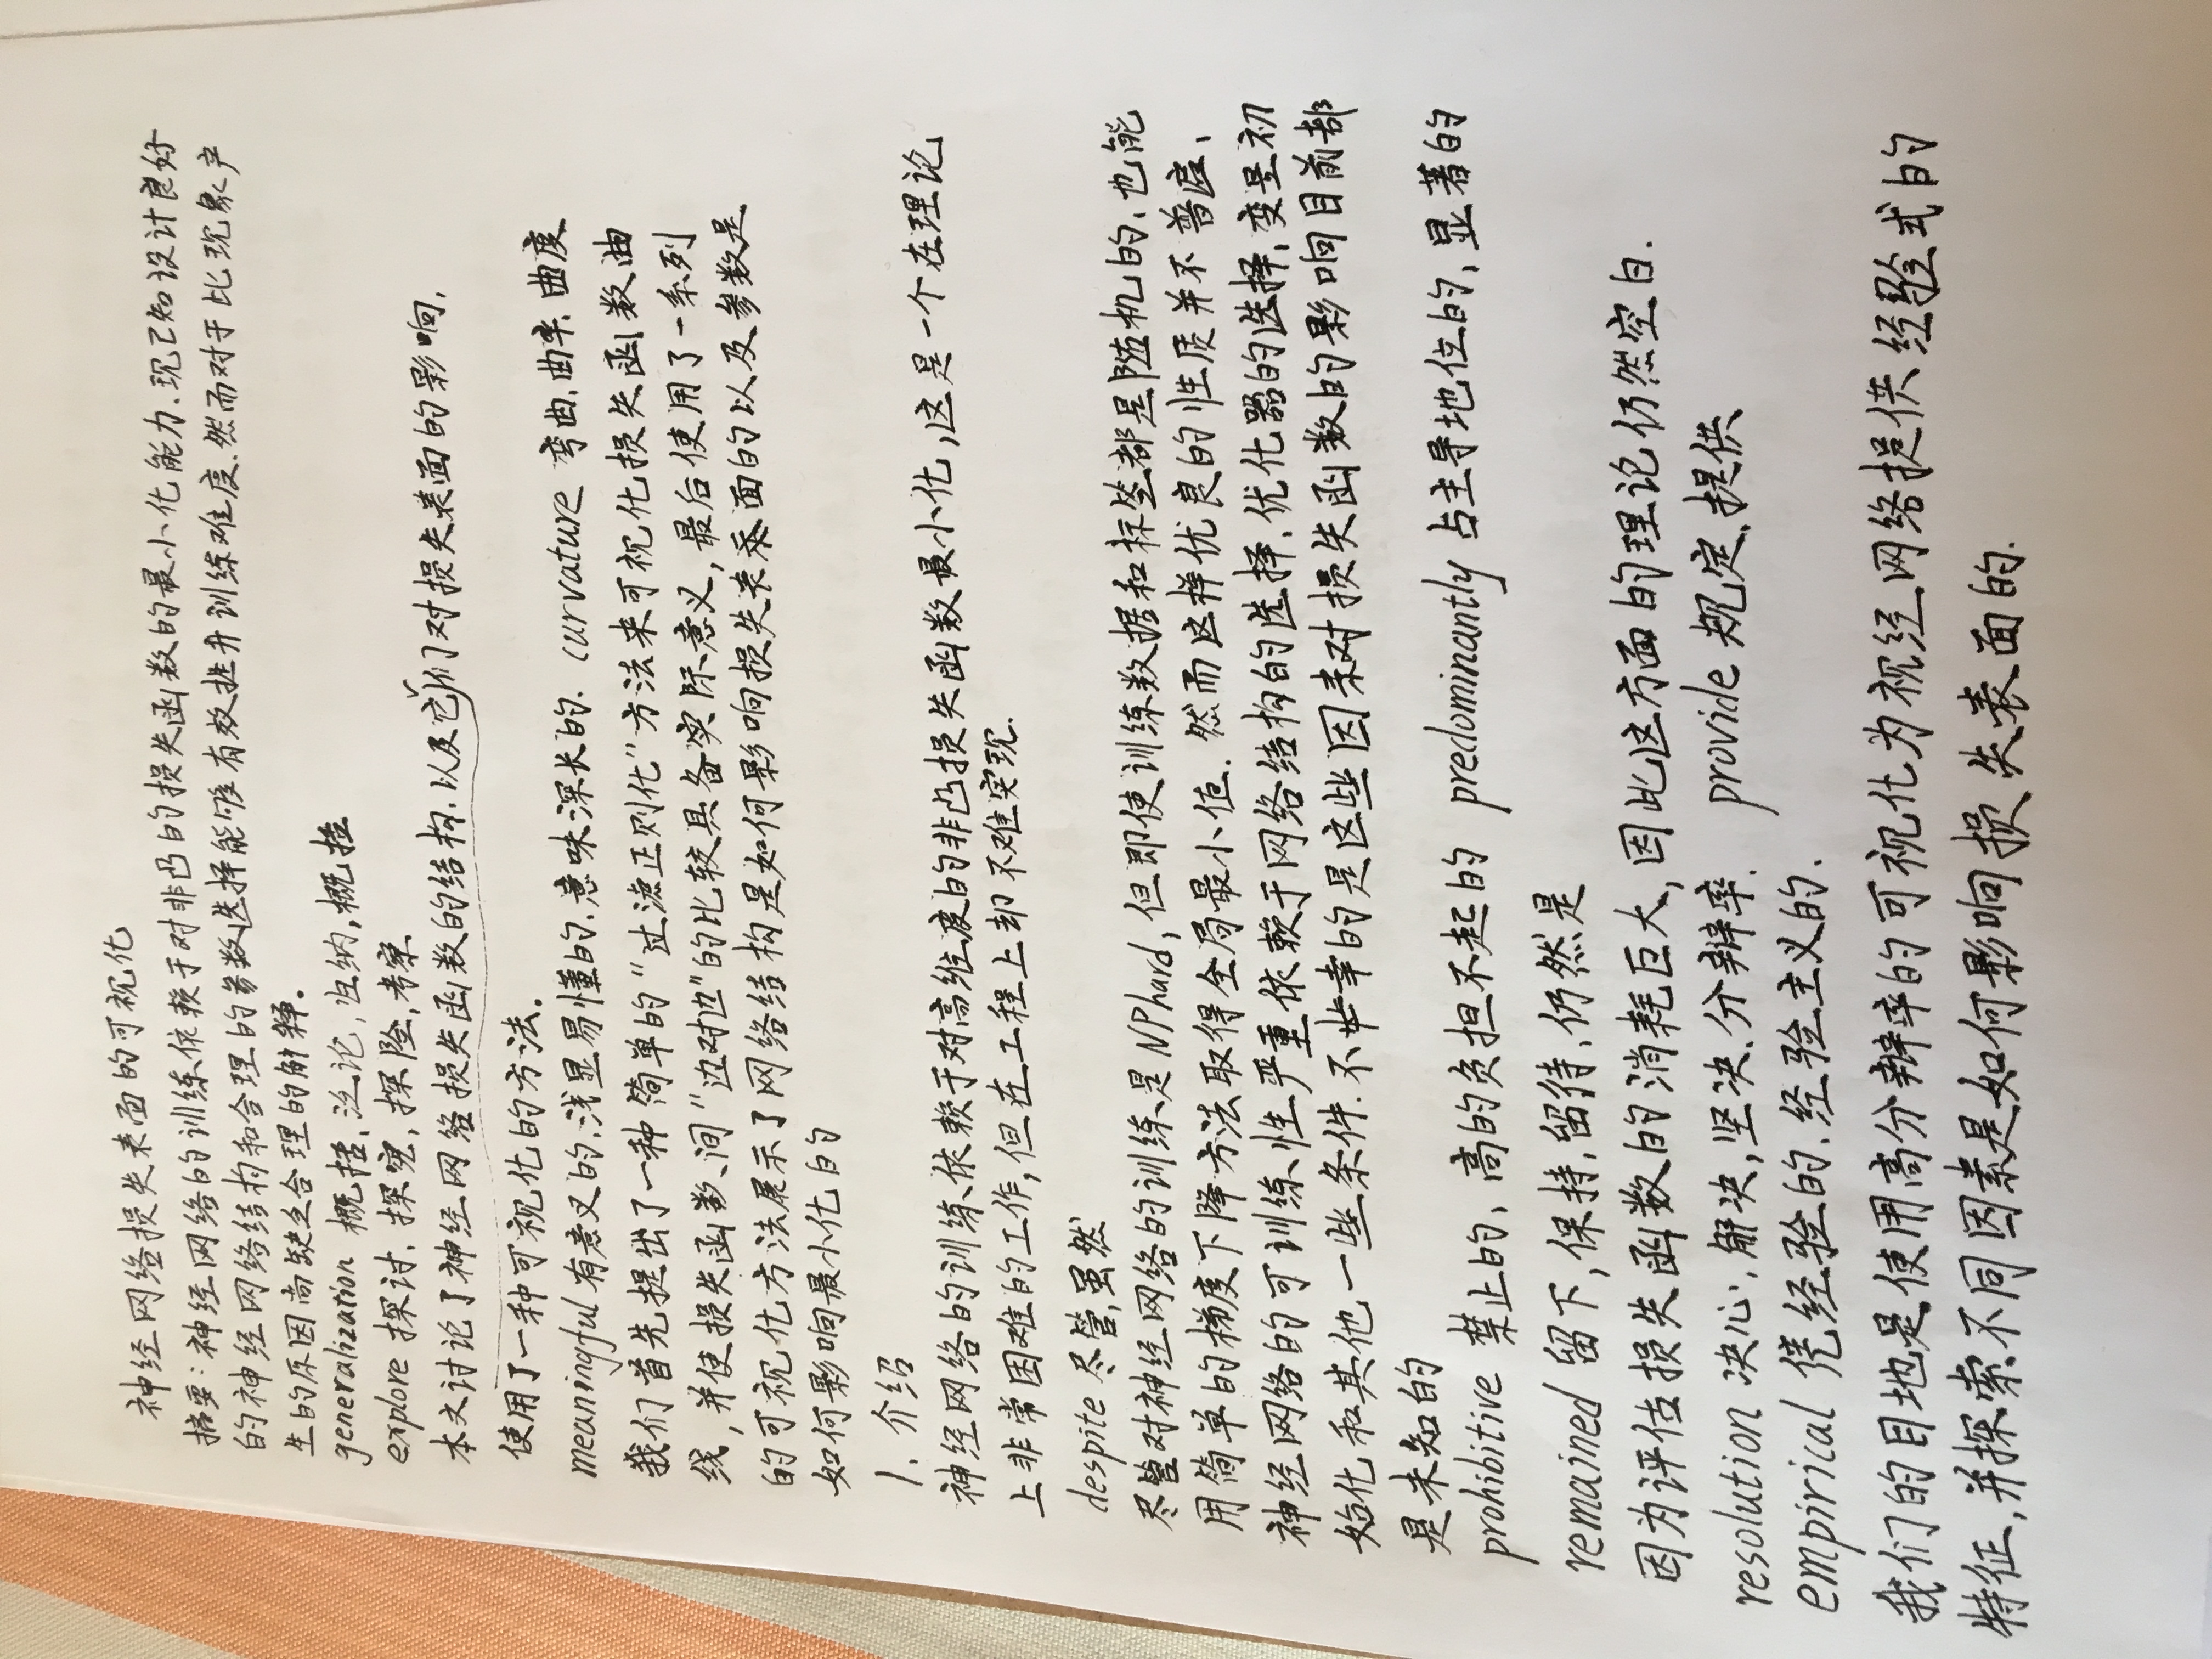 神经网络损失表面的可视化
摘要:神经网络的训练依赖于对非凸的损失函数的最小化能力.现已知设计良好
的神经网络结构和合理的参数选择能够有效提升训练难度.然而对于此现象产
生的原因尚缺乏合理的解释。
generalization 概括,泛论,归纳,概括
explore 探讨.探究,探险,考察
本文讨论了神经网络损失函数的结构.以及它们对损失表面的影响,
使用了一种可视化的方法.
meaningful 有意义的.浅显易懂的.意味深长的. curvature 弯曲.曲率.曲度
我们首先提出了一种简单的“过滤正则化”方法来可视化损失函数曲
线,并使损失函数间“边对边”的比较具备实际意义,最后使用了一系列
的可视化方法展示了网络结构是如何影响损失表面的以及参数是
如何影响最小化的
1. 介绍
神经网络的训练依赖于对高维度的非凸损失函数最小化,这是一个在理论
上非常困难的工作,但在工程上却不难实现.
despite 尽管,虽然
尽管对神经网络的训练是NPhard,但即使训练数据和标签都是随机的、也能
用简单的梯度下降方法取得全局最小值.然而这样优良的性质并不普适、
神经网络的可训练性严重依赖于网络结构的选择.优化器的选择,变量初
始化和其他一些条件.不幸的是这些因素对损失函数的影响目前都
是未知的
prohibitive 禁止的,高的负担不起的 predominantly 占主导地位的,显著的
remained 留下,保持,留待,仍然是
因为评估损失函数的消耗巨大,因此这方面的理论仍然空白.
resolution 决心,解决,坚决.分辨率. provide 规定、提供
empirical 凭经验的.经验主义的.
我们的目地是使用高分辩率的可视化为视经网络提供经验式的
特征,并探索不同因素是如何影响损失表面的.